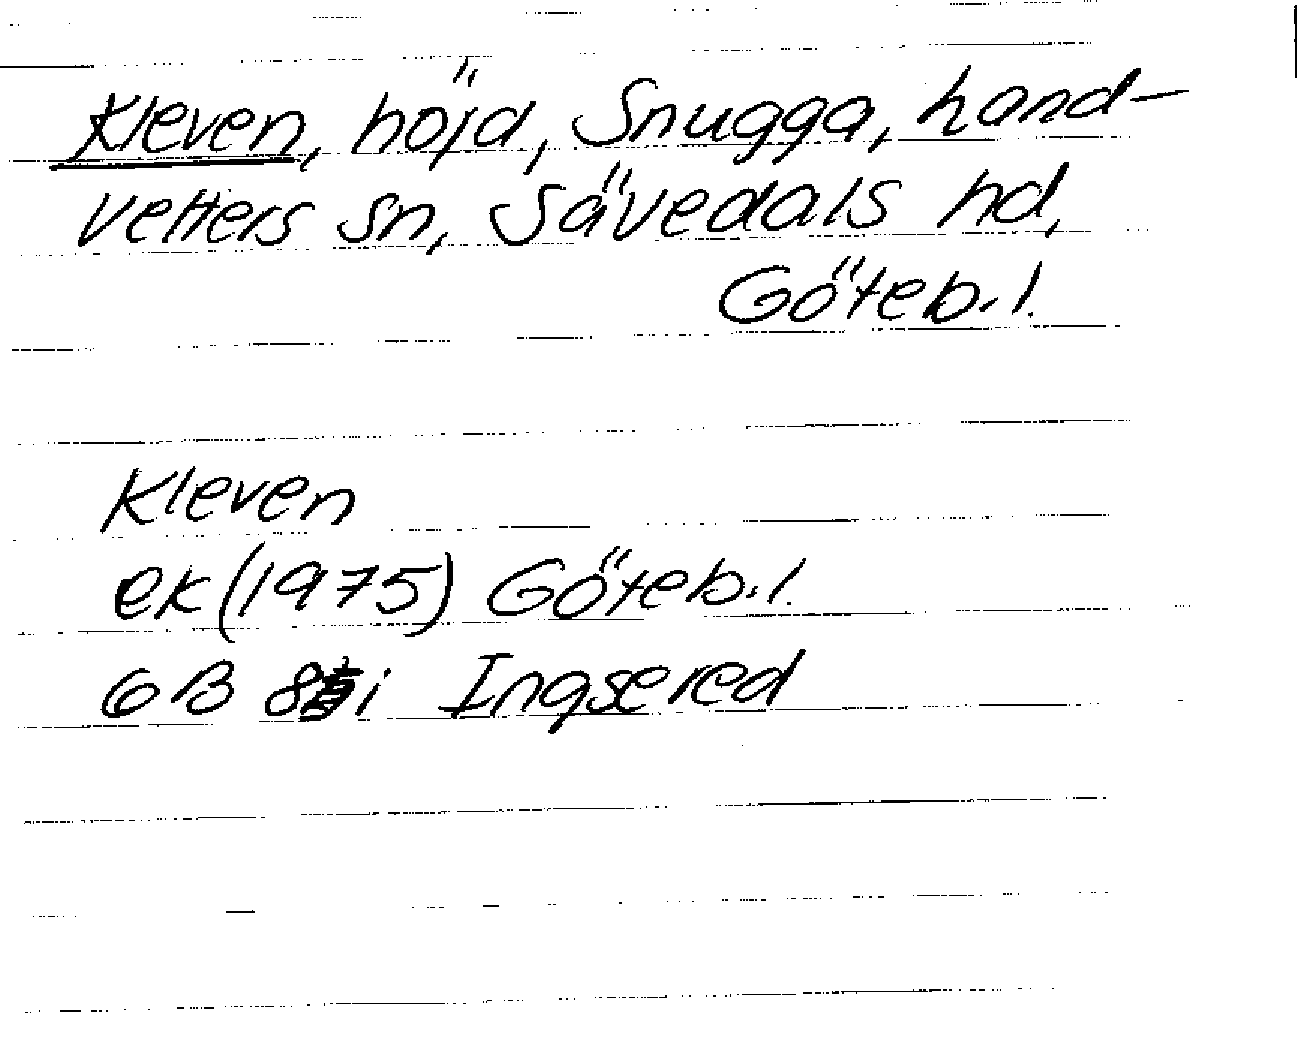 Kleven, höjd, Snugga, hand-
vetters sn, Sävedals hd,
Göteb. l.
Kleven
ek (1975) Göteb. l.
6B 8 i Ingsered